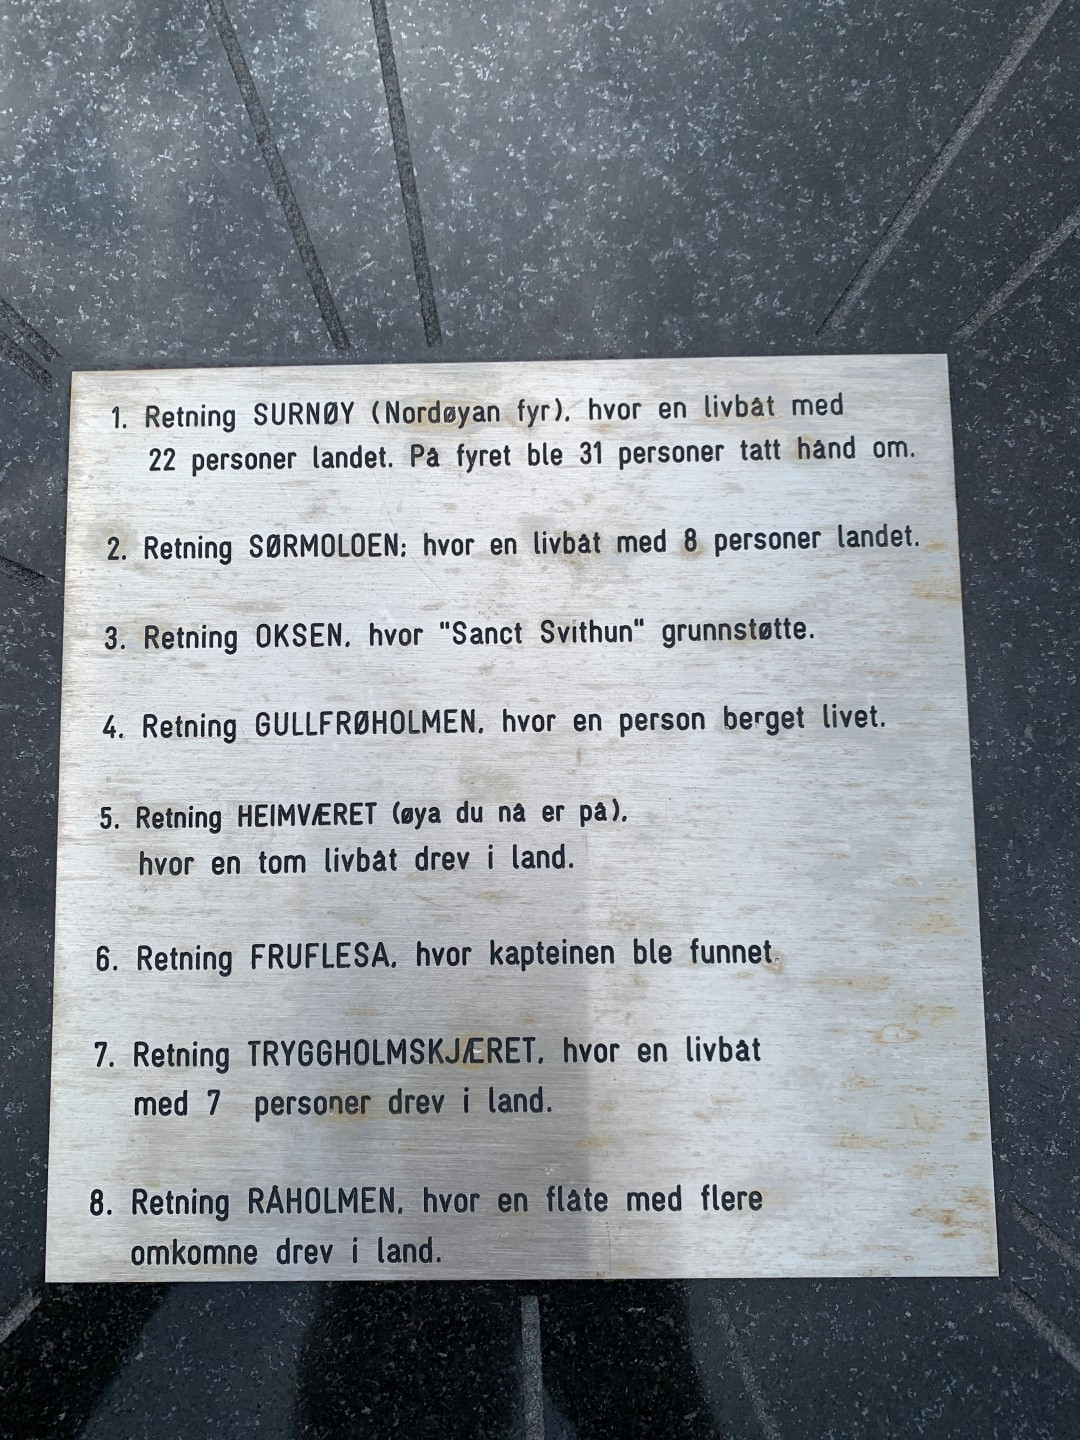 1. Retning SURNØY (Nordøyan fyr), hvor en livbåt med
22 personer landet. På fyret ble 31 personer tatt hånd om.
2. Retning SØRMOLOEN; hvor en livbåt med 8 personer landet.
3. Retning OKSEN, hvor "Sanct Svithun" grunnstøtte.
4. Retning GULLFRØHOLMEN, hvor en person berget livet.
5. Retning HEIMVÆRET (øya du nå er på),
hvor en tom livbåt drev i land.
6. Retning FRUFLESA, hvor kapteinen ble funnet.
7. Retning TRYGGHOLMSKJÆRET, hvor en livbåt
med 7 personer drev i land.
8. Retning RÅHOLMEN, hvor en flåte med flere
omkomne drev i land.